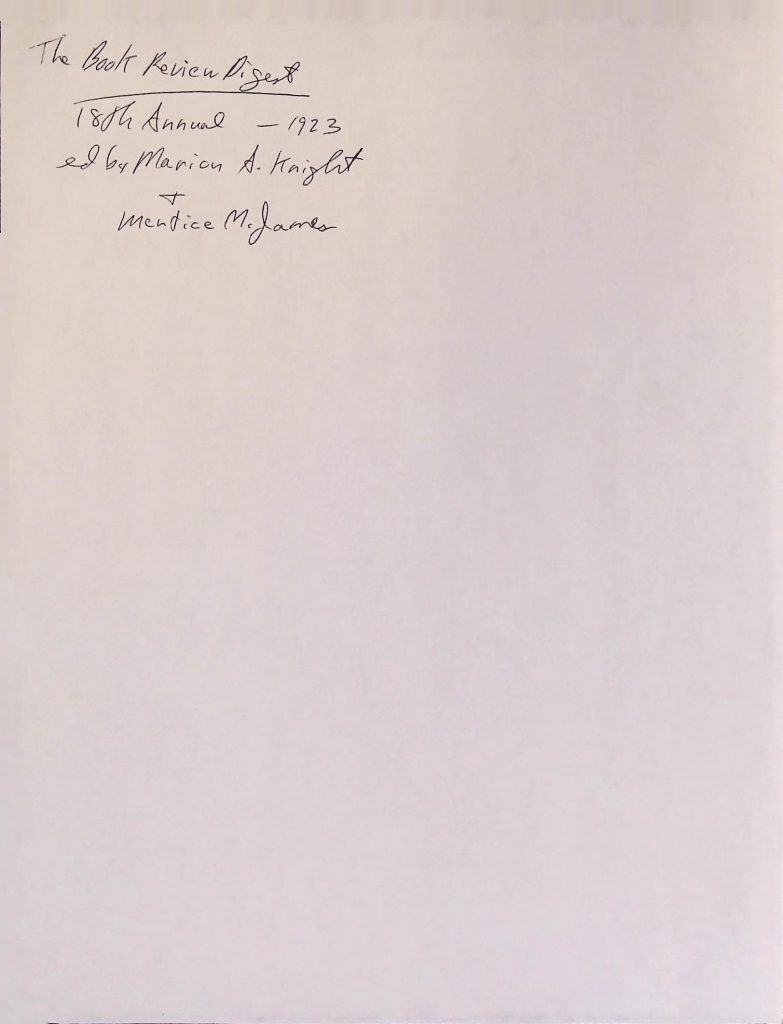 The Book Review Digest
18th Annual — 1923
ed by Marion A. Knight
+
Mertice M. James